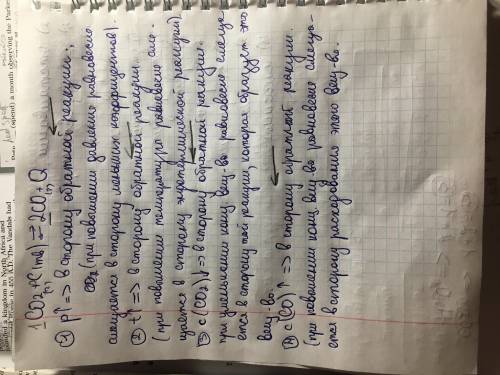 1CO₂ + C(тв) ⇌ 2CO + Q
(г) (г)
① p↑ => в сторону обратной реакции;
CO₂ (при повышении давления равновесие
смещается в сторону меньших коэффициентов).
② t↑ => в сторону обратной реакции
(при повышении температуры равновесие сме-
щается в сторону эндотермической реакции)
③ c(CO₂)↓ => в сторону обратной реакции.
при уменьшении конц. вещ-ва равновесие смеща-
ется в сторону той реакции, которая образует это
вещ-во.
④ c(CO)↑ => в сторону обратной реакции.
(при повышении конц. вещ-ва равновесие смеща-
ется в сторону расходования этого вещ-ва.
a kingdom in North Africa and
in 455 A.D. The Vandals had
(spend) a month observing the